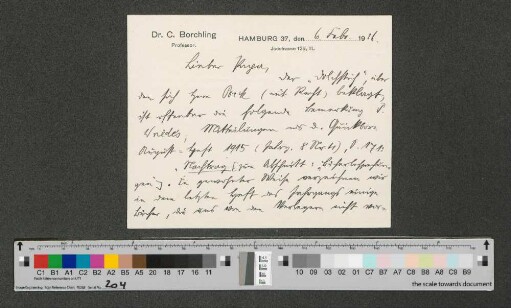 Dr. C. Borchling
Professor.
HAMBURG 37, den 6. Febr. 1916.
Lieber
der "Dolchstich", über
den sich Herr Bock (mit Recht) beklagt,
ist offenbar die folgende Bemerkung P.
Wriedes, Mitteilungen aus d. Quickborn
August-Heft 1915 (Jahrg. 8 Nr. 4), S. 171:
"Nachtrag (zum Abschnitt: "Bücherbesprechun-
gen). In gewohnter Weise verzeichnen wir
in dem letzten Heft des Jahrgangs einige
Bücher, die uns von den Verlegern nicht
C1 B1 A1 C2 B2 A2 B5 A5 20 18 17 16 11
10 09 03 02 01 C7 B7 A7 C8 B8 A8 C9 B9
204
the scale towards document